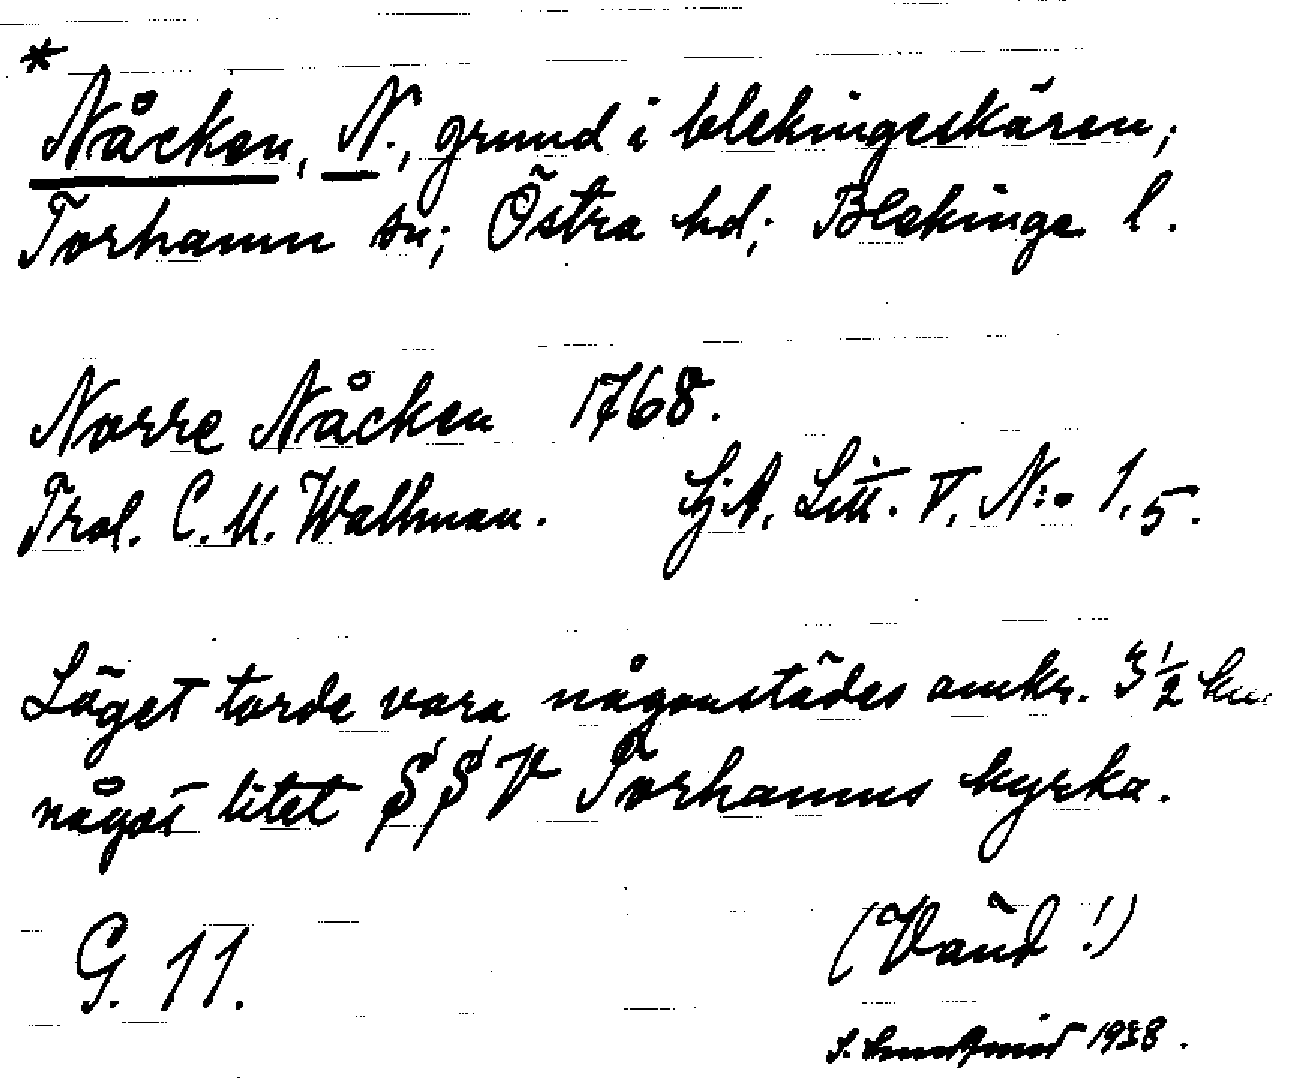 * Nåcken, N., grund i blekingeskären;
Torhamn sn; Östra hd; Blekinge l.
Norre Nåcken 1768.
Trol. C. M. Wallman. SjA. Litt. V. N:o 1.5.
Läget torde vara någonstädes omkr. 3 1/2 km
något litet SSV Torhamns kyrka.
G. 11.
(Vänd!)
S. 1938.